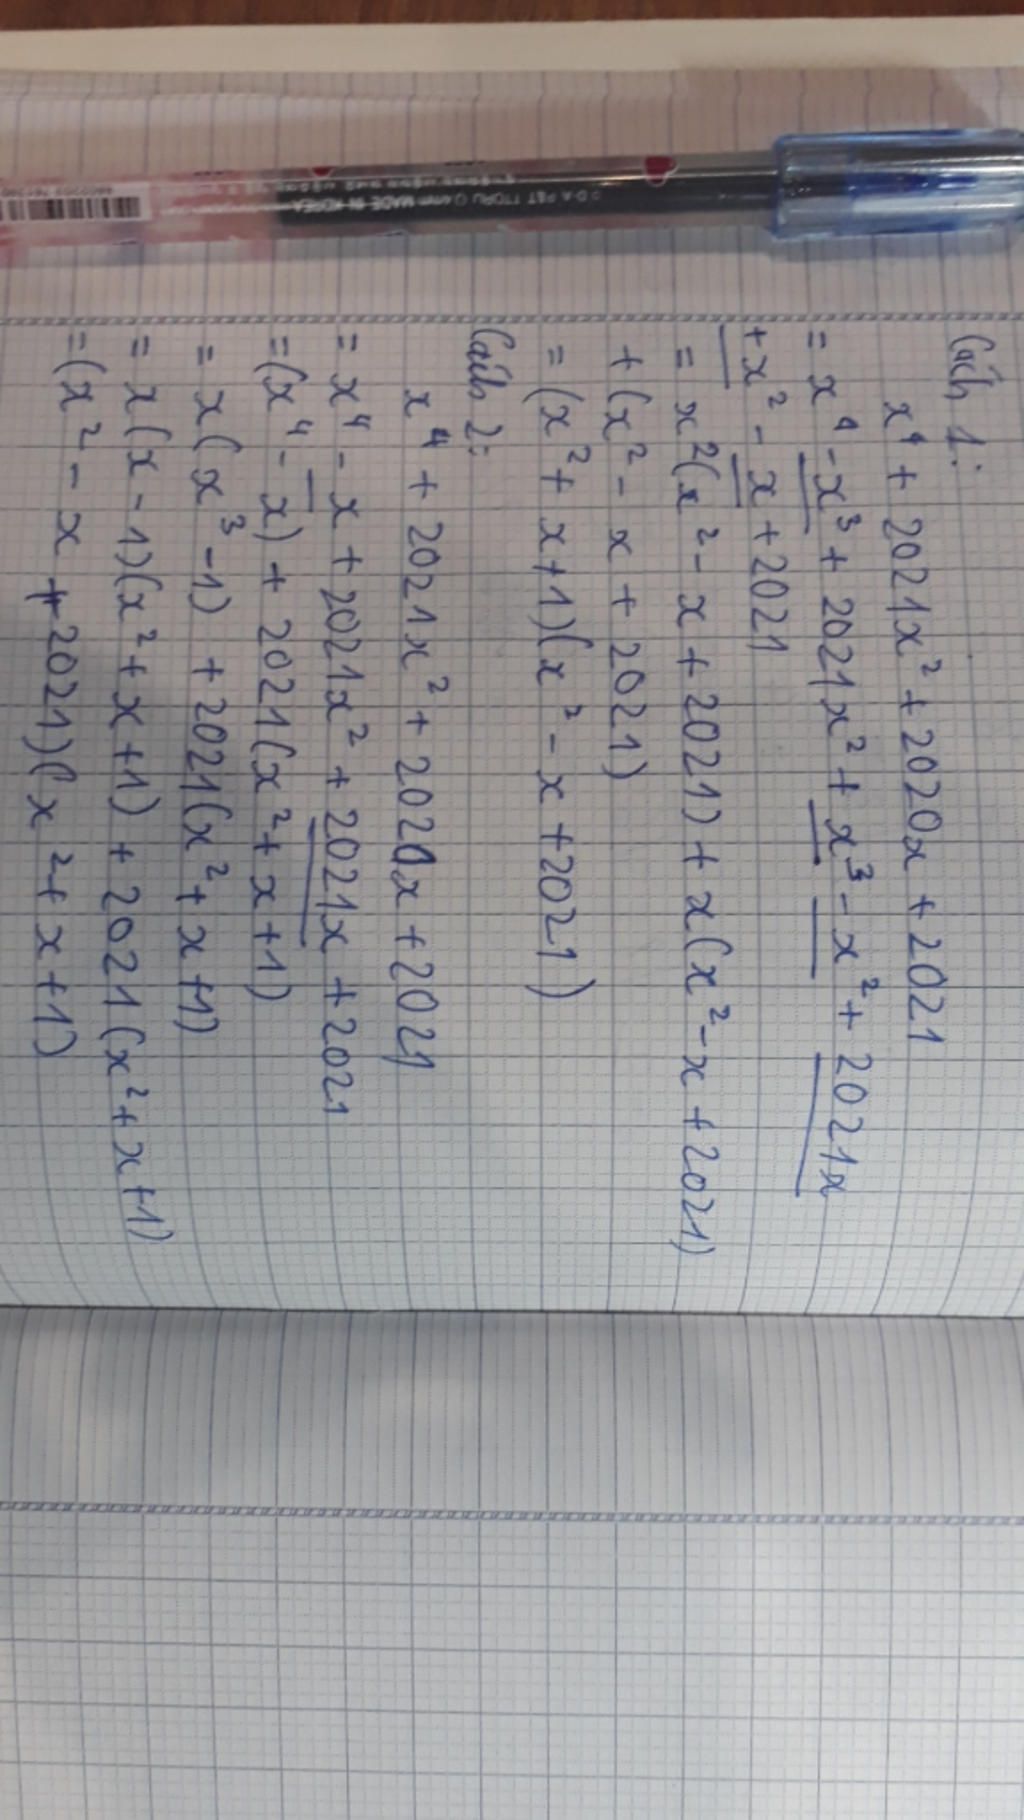 Cách 1:
x⁴ + 2021x² + 2020x + 2021
= x⁴ - x³ + 2021x² + x³ - x² + 2021x
+ x² - x + 2021
= x²(x² - x + 2021) + x(x² - x + 2021)
+ (x² - x + 2021)
= (x² + x + 1)(x² - x + 2021)
Cách 2:
x⁴ + 2021x² + 2020x + 2021
= x⁴ - x + 2021x² + 2021x + 2021
= (x⁴ - x) + 2021(x² + x + 1)
= x(x³ - 1) + 2021(x² + x + 1)
= x(x - 1)(x² + x + 1) + 2021(x² + x + 1)
= (x² - x + 2021)(x² + x + 1)
MADE IN KOREA